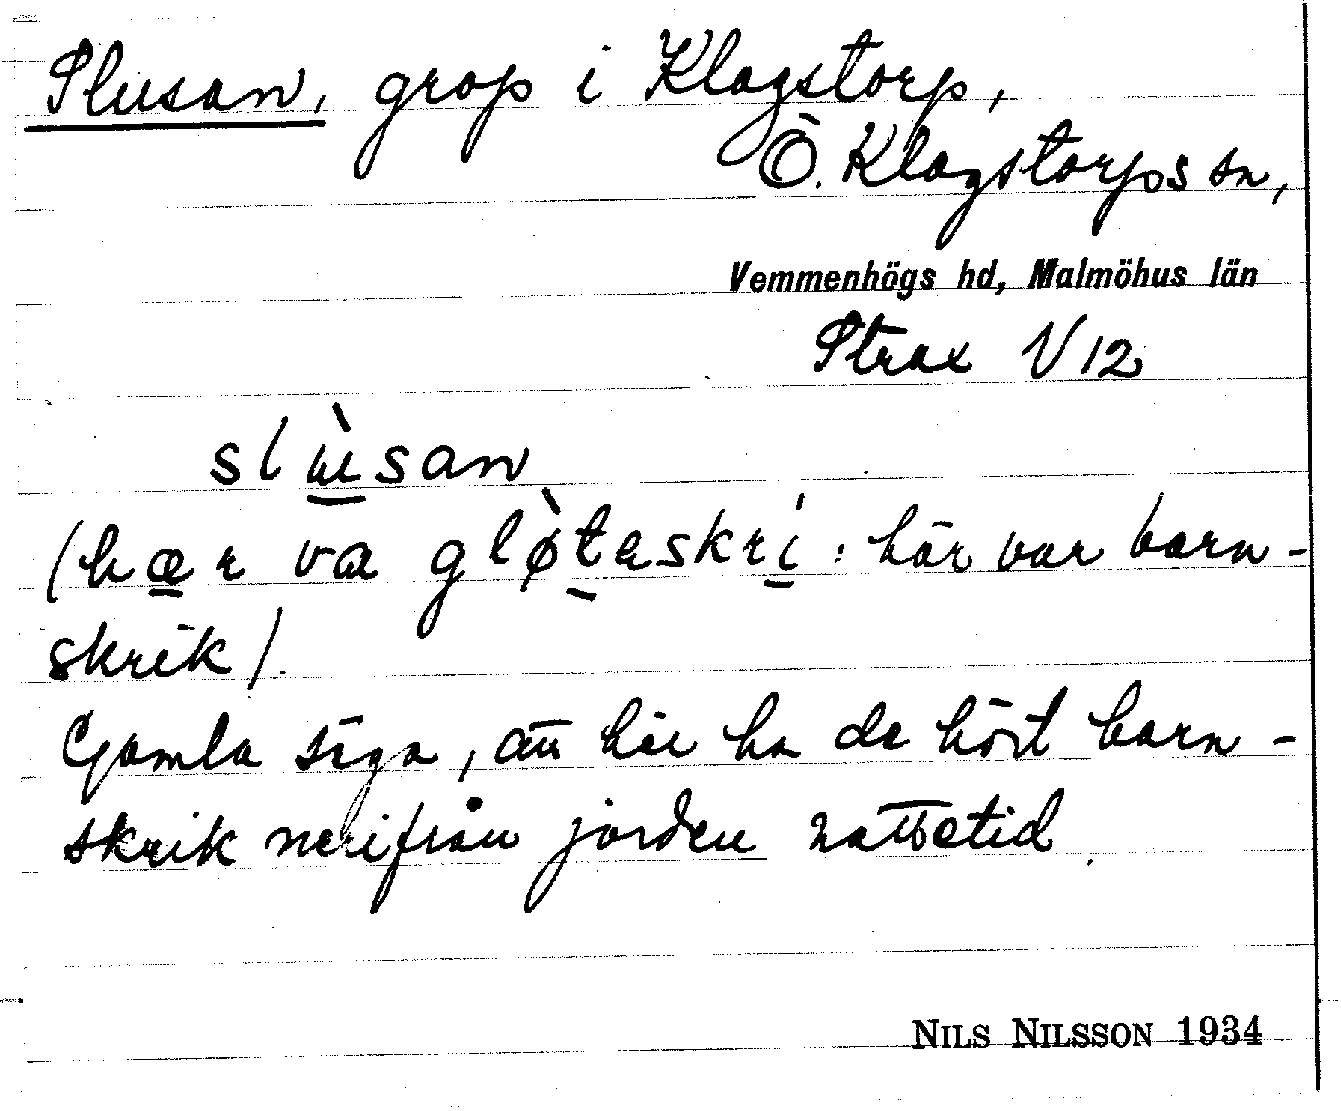 Slusan, grop i Klagstorp,
Ö. Klagstorps sn,
Vemmenhögs hd, Malmöhus län
Strax V 12
slù̲san
(hæ̲r va glø̀t̲askrí̲ : här var barn-
skrik).
Gamla säga, att här ha de hört barn-
skrik nerifrån jorden nattetid.
NILS NILSSON 1934